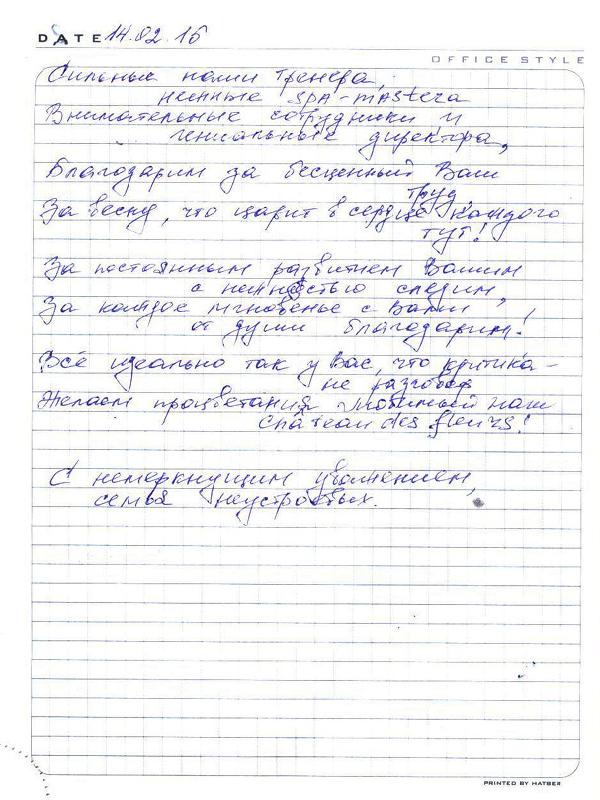 DATE 14.02.15
OFFICE STYLE
Сильные наши тренера,
нежные SPA-mastera
Внимательные сотрудники и
гениальные директора,
Благодарим за бесценный Ваш
труд
За весну, что царит в сердце каждого
тут!
За постоянным развитием Вашим
с нежностью следим,
За каждое мгновенье с Вами
от души благодарим!
Всё идеально так у Вас, что критика-
не разговор
Желаем процветания любимый наш
Château des fleurs!
С немеркнущим уважением,
семья Неустроевых.
PRINTED BY HATBER